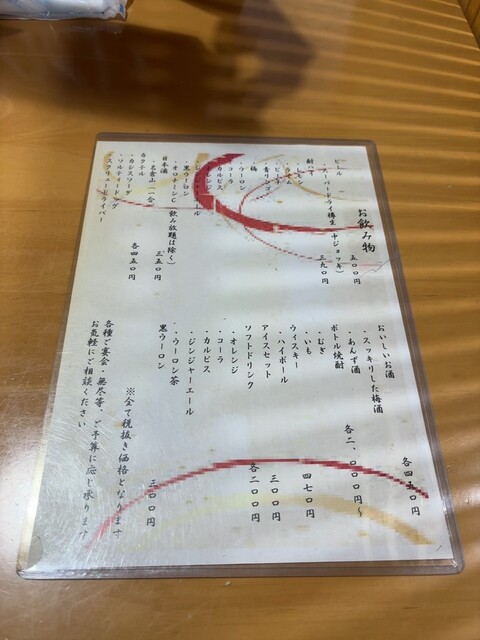 お飲み物
ビール
・スーパードライ樽生（中ジョッキ）
五〇〇円
酎
三九〇円
・青リンゴ
・梅
・ウーロン
・コーラ
・カルピス
・オレンジ
・黒ウーロン
・オロナミンC（飲み放題は除く）
日本酒
・名倉山（一合）
三五〇円
カクテル
・カシスソーダ
・ソルティードッグ
・スクリュードライバー
各四五〇円
おいしいお酒
・スッキリした梅酒
・あんず酒
各四五〇円
ボトル焼酎
・むぎ
・いも
各二、〇〇〇円〜
ウィスキー
・ハイボール
四七〇円
アイスセット
三〇〇円
ソフトドリンク
各二〇〇円
・オレンジ
・コーラ
・カルピス
・ジンジャーエール
・ウーロン茶
黒ウーロン
三〇〇円
※全て税抜き価格となります
各種ご宴会・無尽等、ご予算に応じ承ります
お気軽にご相談ください